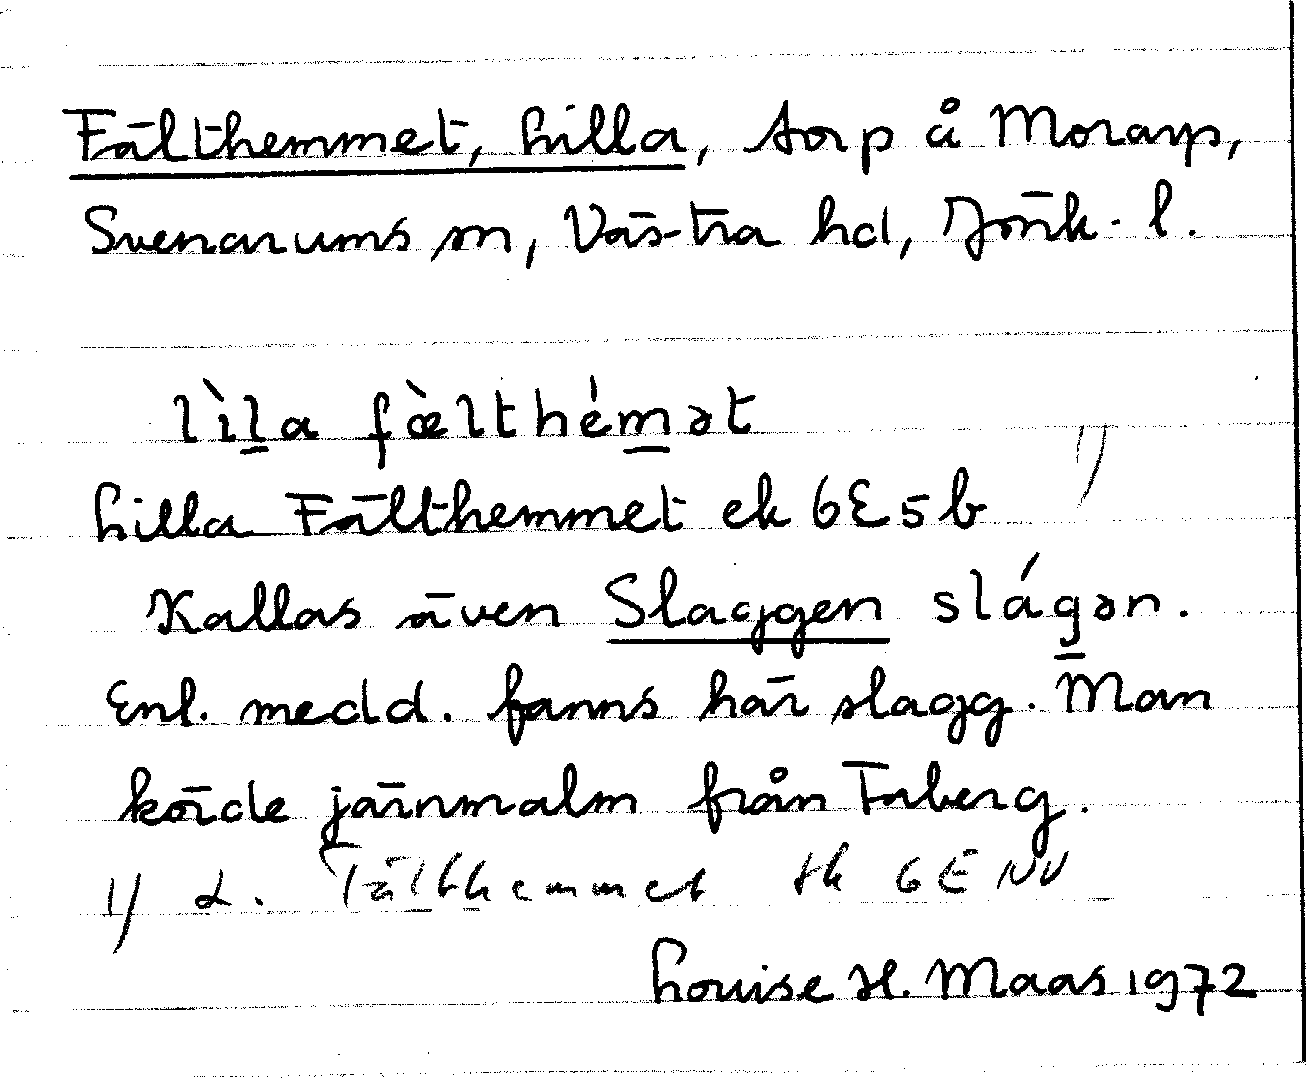 Fälthemmet, Lilla, torp å Morarp,
Svenarums sn, Västra hd, Jönk. l.
lìl̲a fæ̀lthém̲ət
Lilla Fälthemmet ek 6E5b 1)
Kallas även Slaggen slág̲ən.
Enl. medd. fanns här slagg. Man
körde järnmalm från Taberg.
1) L. Fälthemmet tk 6E NV
Louise H. Maas 1972